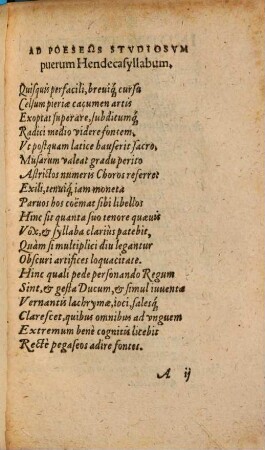 AD POESEΩS STVDIOSVM
puerum Hendecasyllabum.
Quisquis perfacili, breuiq́; cursu
Celsum pieriæ cacumen artis
Exoptat superare, subditumq́;
Radici medio videre fontem,
Vt postquam latice hauserit sacro,
Musarum valeat gradu perito
Astrictos numeris Choros referre:
Exili, tenuiq́; iam moneta
Paruos hos coëmat sibi libellos
Hinc sit quanta suo tenore quæuis
Vox, & syllaba clariùs patebit,
Quàm si multiplici diu legantur
Obscuri artifices loquacitate.
Hinc quali pede personando Regum
Sint, & gesta Ducum, & simul iuuentæ
Vernantis lachrymæ, ioci, salesq́;
Clarescet, quibus omnibus ad vnguem
Extremum benè cognitis licebit
Rectè pegaseos adire fontes.
A ij